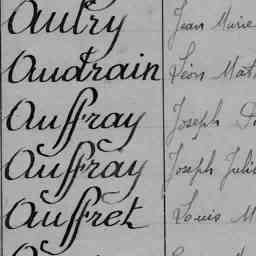 Autry Jean Marie
Audrain Léon Mat
Auffray Joseph
Auffray Joseph Juli
Auffret Louis M